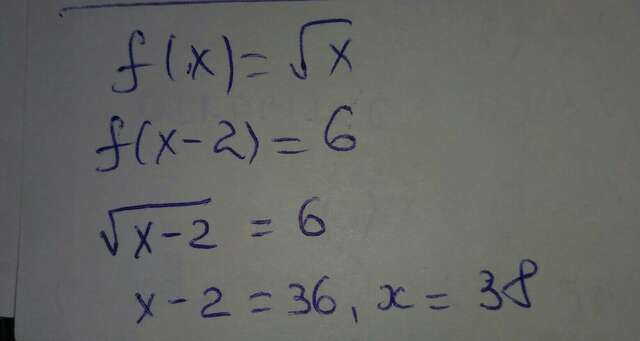 f(x) = √x
f(x-2) = 6
√x-2 = 6
x-2 = 36, x = 38